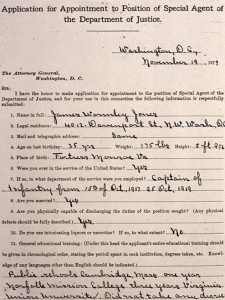 Application for Appointment to Position of Special Agent of
the Department of Justice.
Washington, D.C.,
November 19, 1919
The Attorney General,
Washington, D. C.
SIR:
I have the honor to make application for appointment to the position of Special Agent of the
Department of Justice, and for your use in this connection the following information is respectfully
submitted:
1. Name in full: James Wormley Jones
2. Legal residence: 4012 Davenport St., N.W. Wash. D.C.
3. Mail and telegraphic address: Same
4. Age on last birthday: 35 yrs Weight: 175 lbs Height: 5 ft
5. Place of birth: Fortress Monroe Va
6. Were you ever in the service of the United States? Yes
7. If so, in what department of the service were you employed? Captain of
Infantry from 15th of Oct. 1917 25 Oct. 1919
8. Are you married? Yes
9. Are you physically capable of discharging the duties of the position sought? (Any physical
defects should be fully described) Yes
10. Do you use intoxicating liquors or narcotics? If so, to what extent? No
11. General educational training: (Under this head the applicant's entire educational training should
be given in chronological order, stating the period spent in each institution, degrees taken, etc. Knowl-
edge of any languages other than English should be indicated)
Public schools Cambridge, Mass one year
Norfolk Mission College three years Virginia
Union University Did not take